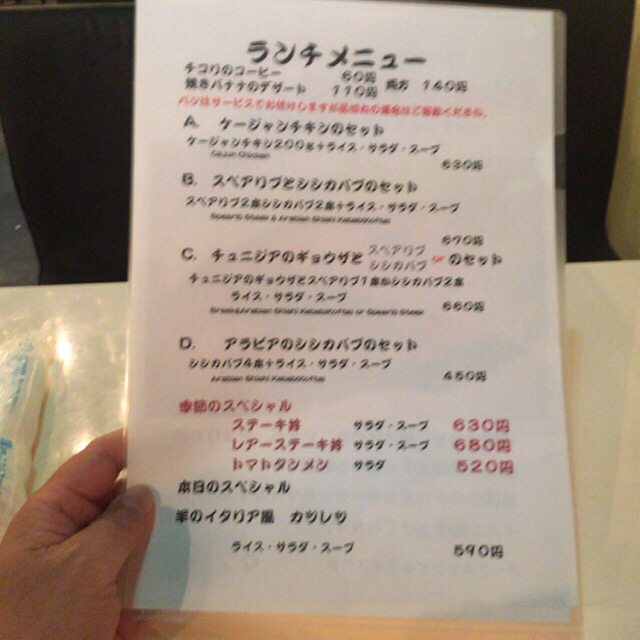 ランチメニュー
チコリのコーヒー 60円
焼きバナナのデザート 110円 両方 140円
A. ケージャンチキンのセット
ケージャンチキン200g+ライス・サラダ・スープ
Cajun Chicken
630円
B. スペアリブとシシカバブのセット
スペアリブ2本シシカバブ2本+ライス・サラダ・スープ
670円
C. チュニジアのギョウザと スペアリブ or シシカバブ のセット
チュニジアのギョウザとスペアリブ1本かシシカバブ2本
ライス・サラダ・スープ
660円
D. アラビアのシシカバブのセット
シシカバブ4本+ライス・サラダ・スープ
450円
季節のスペシャル
ステーキ丼 サラダ・スープ 630円
レアーステーキ丼 サラダ・スープ 680円
トマトタンメン サラダ 520円
本日のスペシャル
羊のイタリア風 カツレツ
ライス・サラダ・スープ 590円